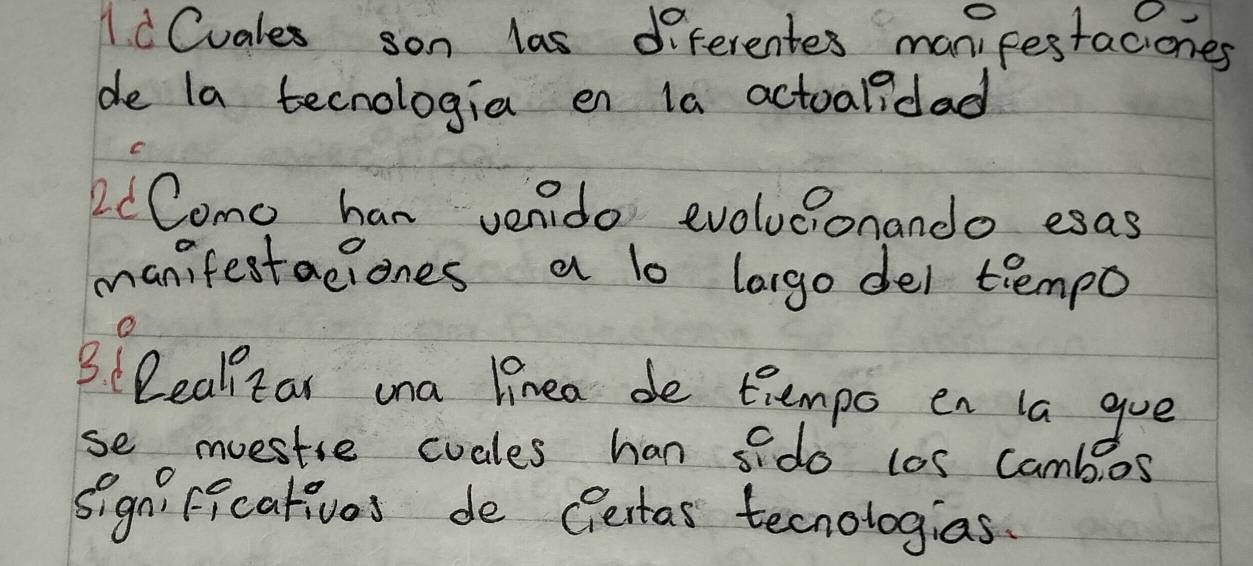 1.¿Cuales son las diferentes manifestaciones
de la tecnologia en la actualidad
2¿Como han venido evolucionando esas
manifestaciones a lo largo del tiempo
3.¿Realizar una linea de tiempo en la que
se muestre cuales han sido los cambios
significativos de ciertas tecnologias.